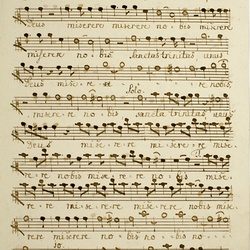 Deus miserere miserere nobis miserere
miserere nobis Sancta trinitas unus
Deus miserere nobis,
miserere nobis Solo. Sancta trinitas unus
Deus miserere miserere re
re nobis miserere re nobis mise
re re miserere re nobis mise
rere miserere nobis nobis no